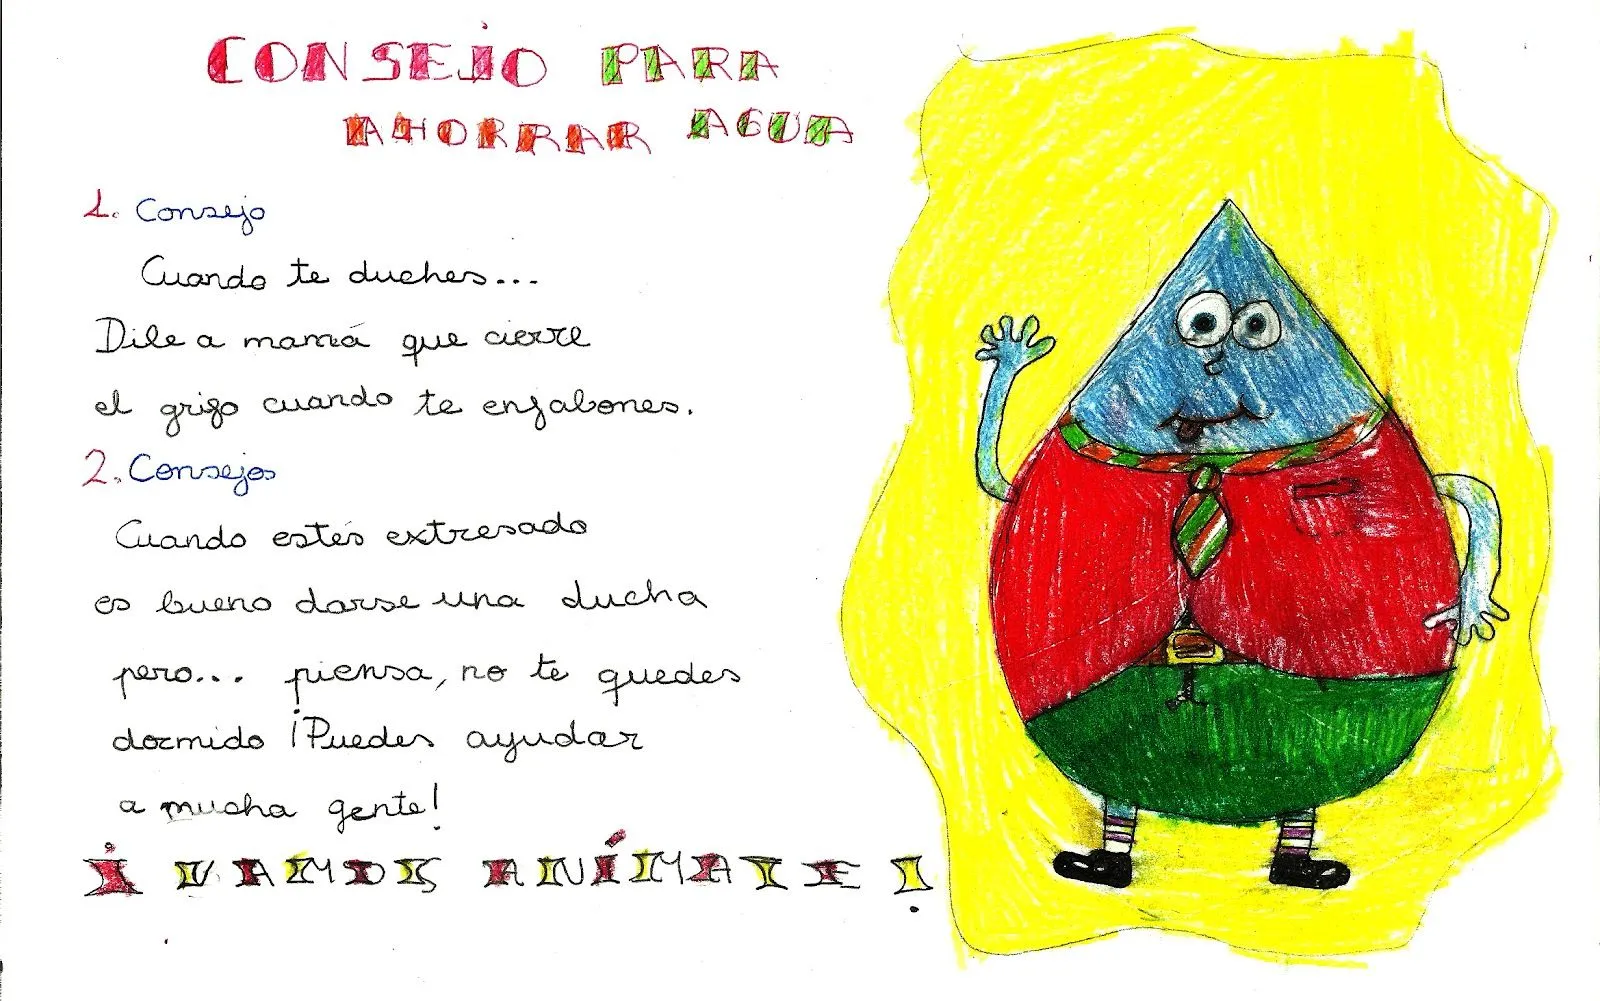 CONSEJO PARA
AHORRAR AGUA
1. Consejo
Cuando te duches...
Dile a mamá que cierre
el grifo cuando te enjabones.
2. Consejos
Cuando estés extresado
es bueno darse una ducha
pero... piensa, no te quedes
dormido ¡Puedes ayudar
a mucha gente!
¡VAMOS ANÍMATE!